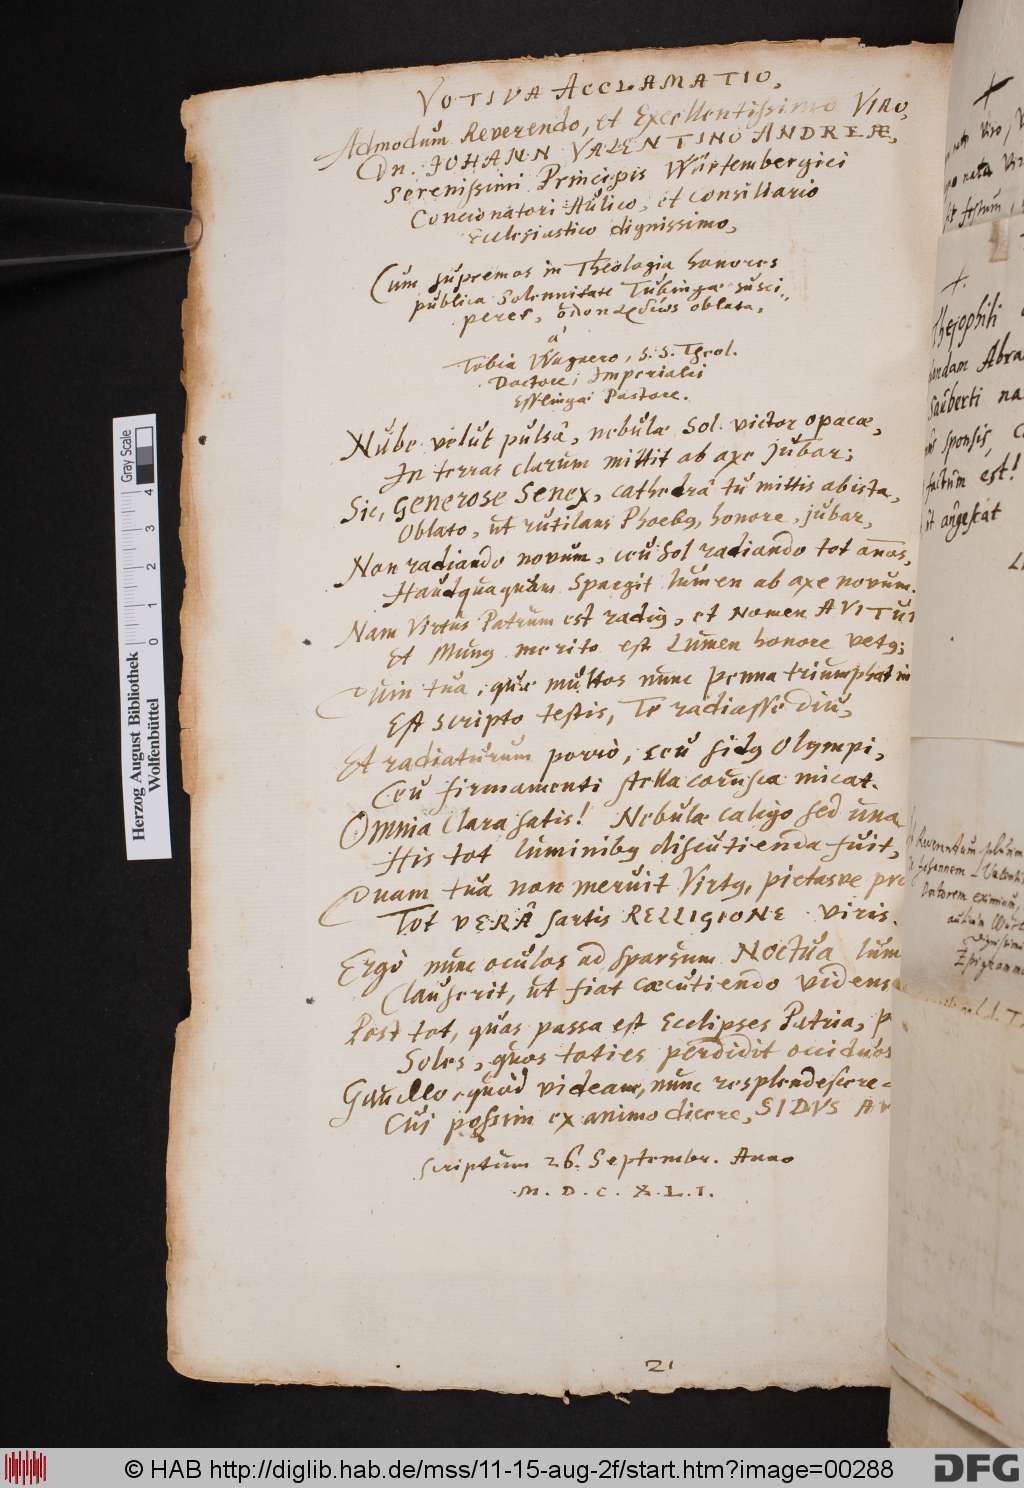 VOTIVA ACCLAMATIO,
Admodum Reverendo, et Excellentissimo VIRO,
Dn. JOHANN VALENTINO ANDREÆ,
Serenissimi Principis Würtembergici
Concionatori Aulico, et Consiliario
Ecclesiastico dignissimo,
Cum supremos in Theologia honores
publica Solennitate Tubingæ susci-
peret, oblata,
a
Tobia Wagnero, S.S. Theol.
Doctore; Imperialis
Esslingæ Pastore.
Nube velut pulsâ, nebulæ Sol victor opacæ,
In terras clarum mittit ab axe jubar;
Sic, Generose Senex, cathedrâ tu mittis ab ista,
Oblato, ut rutilans Phoebꝰ, honore, jubar,
Non radiando novum, ceu Sol radiando tot anōs,
Haudquaquam spargit lumen ab axe novum.
Nam Virtus Patrum est radiꝰ, et Nomen AVITUM
Et Munꝰ merito est Lumen honore vetꝰ;
Quin tua, quæ multos nunc penna triumphat in
Est scripto testis, Te radiasse diu,
Et radiaturum porrò, ceu sidꝰ Olympi,
Ceu firmamenti stella corusca micat.
Omnia clara satis! Nebulæ caligo sed una
His tot luminibꝰ discutienda fuit,
Quam tua non meruit Virtꝰ, pietasve pro
Tot VERÂ sartis RELLIGIONE viris.
Ergò nunc oculos ad sparsum Noctua lum
Clauserit, ut fiat cæcutiendo videns
Post tot, quas passa est Ecclipses Patria, p
Soles, quos toties perdidit occiduos
Gaudeo, quòd videam, nunc resplendescere
Cui possim ex animo dicere, SIDUS A
Scriptum 26. Septembr. Anno
M. D. C. X L. I.
21
Theophili
Abra
Sauberti na
sponsis,
factum est!
Reverendum
Johannem Valenti
Doctorem eximium
Epigramma
Herzog August Bibliothek
Wolfenbüttel
Gray Scale
0 1 2 3 4
© HAB http://diglib.hab.de/mss/11-15-aug-2f/start.htm?image=00288
DFG